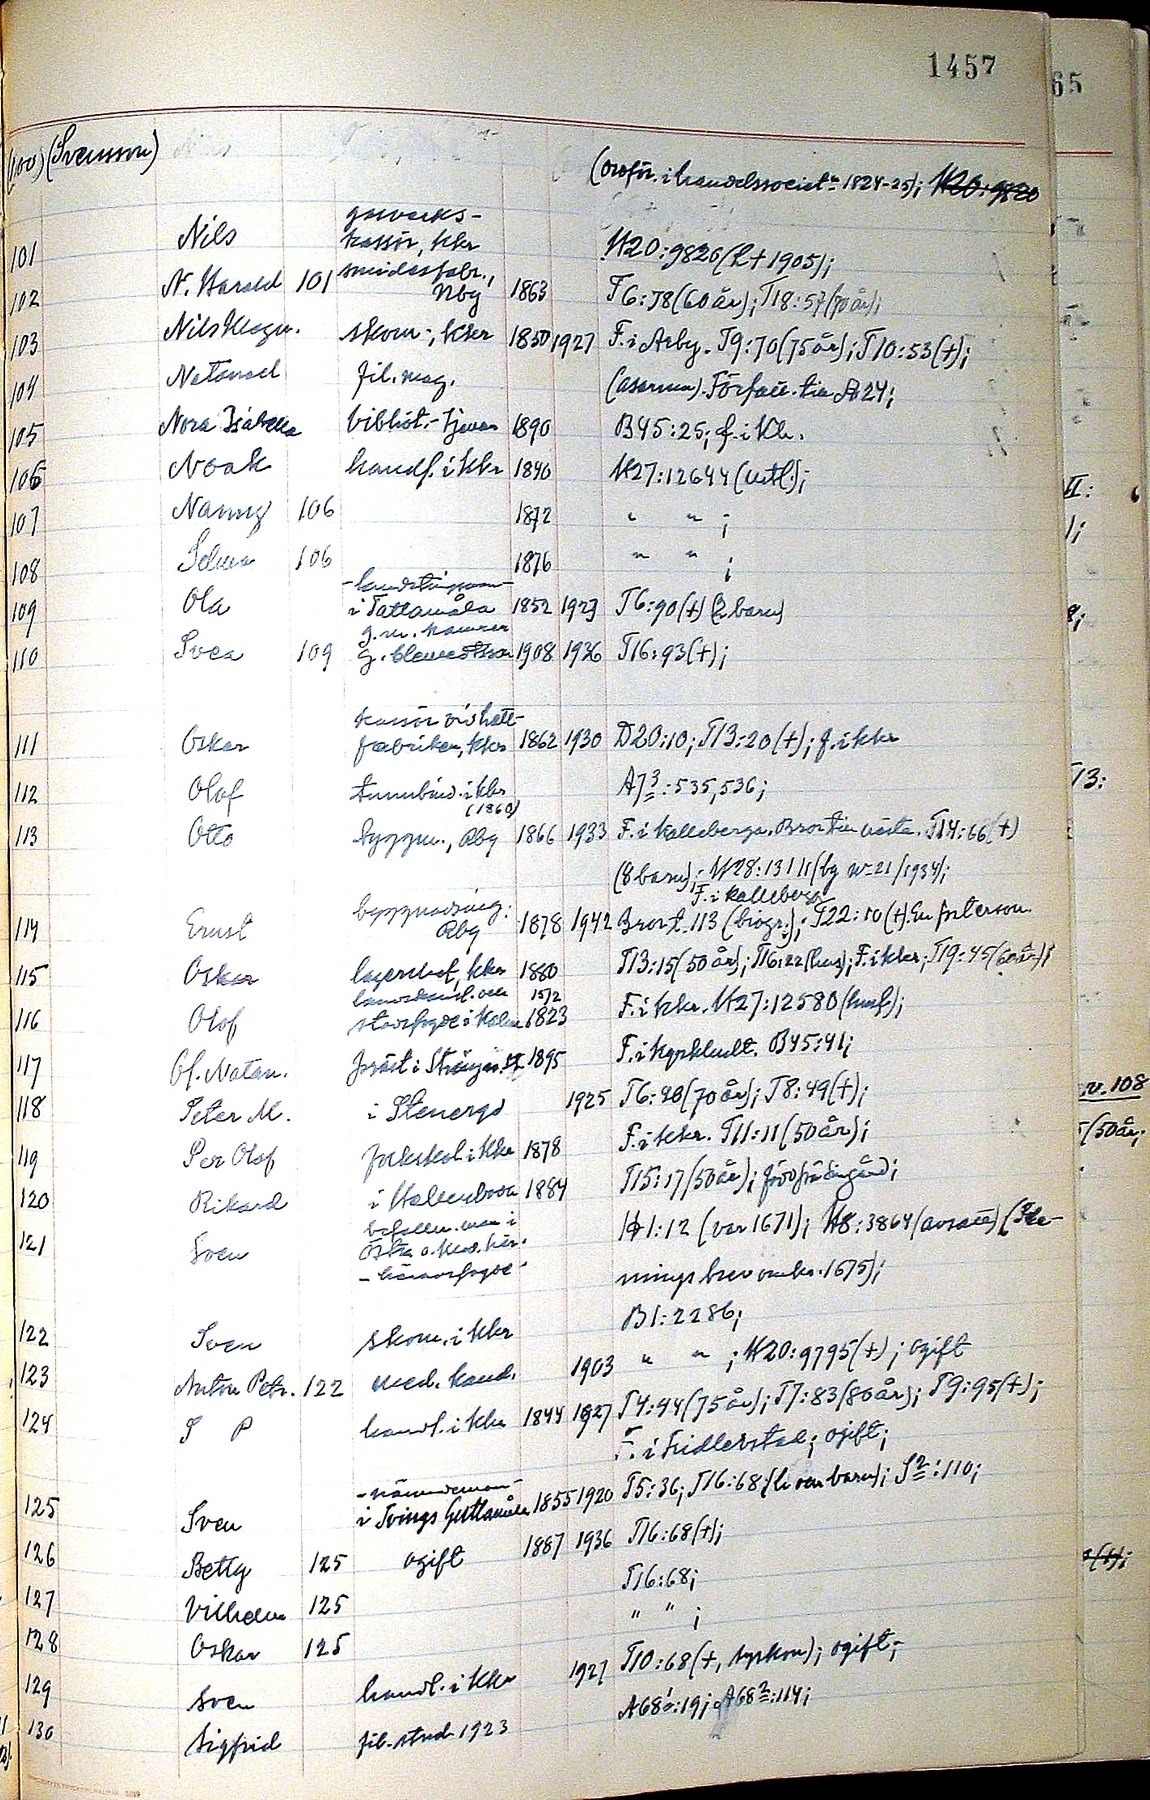 1457
65
(100) (Svensson) (ordför. i handelssociet:n 1824-25); H20:9820
101 Nils gasverks-
kassör, kkr H20:9820 (h+1905);
102 N. Harald 101 smidesfabr.,
Nby 1863 T6:78 (60 år); T18:57 (80 år);
103 Nils Magn. skom:, kkr 1850 1927 F. i Arby. T9:70 (75 år); T10:53 (+);
104 Natanael fil. mag. Förfat. till B24;
105 Nora Isabella bibliot.- 1890 B45:25; f. i Kkr.
106 Noak handl. i kkr 1840 H27:12644 (utfl.);
107 Nanny 106 1872 " " ;
108 Selma 106 1876 " " ;
109 Ola -landstingsman-
i Tattamåla 1852 1923 T6:90 (+) (2 barn)
110 Svea 109 g. m. kamrer
G. Clemedtson 1908 1936 T16:93 (+);
111 Oskar kassör vid hatt-
fabriken, kkr 1862 1930 D20:10; T13:20 (+); f. i kkr
112 Olof tunnbind. i kkr
(1860) A7 3:535, 536;
113 Otto byggm., Rby 1866 1933 F. i Kalleberga. Bror till nästa. T14:66 (+)
(8 barn); H28:13111 (by n:21/1934);
F. i Kalleberga
114 Ernst byggnadsing:
Rby 1878 1942 Bror t. 113 (biogr.); T22:10 (+) En son.
115 Oskar lagerchef, kkr 1880 T13:15 (50 år); T16:22 (hus); F. i kkr; T19:45 (60 år);
116 Olof landskansl. och 15/2
stadsfogde i Kalmar 1823 F. i kkr. H27:12580 (husf.);
117 Of. Natan. präst i 1895 F. i Kyrkhult. B45:41;
118 Peter M. i Stenergd 1925 T6:98 (70 år); T8:49 (+);
119 Per Olof folkskol. i kkr 1878 F. i kkr. T11:11 (50 år);
120 Rikard i Hallenboda 1884 T15:17 (50 år);
121 Sven befalln. man i
Östra o. Med. här.
-häradsfogde- H1:12 (var 1671); H8:3864 (avsatt)
ningsbrev omkr. 1675);
122 Sven skom. i kkr B1:2286;
123 Anton Petr. 122 med. kand. 1903 " " ; H20:9795 (+); ogift
124 S P handl. i kkr 1844 1927 T4:94 (75 år); T7:83 (80 år); T9:95 (+);
F. i Fridlevstad; ogift;
125 Sven -nämndeman-
i Tvings Guttamåla 1855 1920 T5:36; T16:68 (h. och barn); S2:110;
126 Betty 125 ogift 1887 1936 T16:68 (+);
127 Vilhelm 125 T16:68;
128 Oskar 125 " " ;
129 Sven handl. i kkr 1927 T10:68 (+, syskon); ogift;
130 Sigfrid fil. stud. 1923 A68 1:19; A68 2:114;
II:
);
T3:
v. 108
(50 år;
(+);